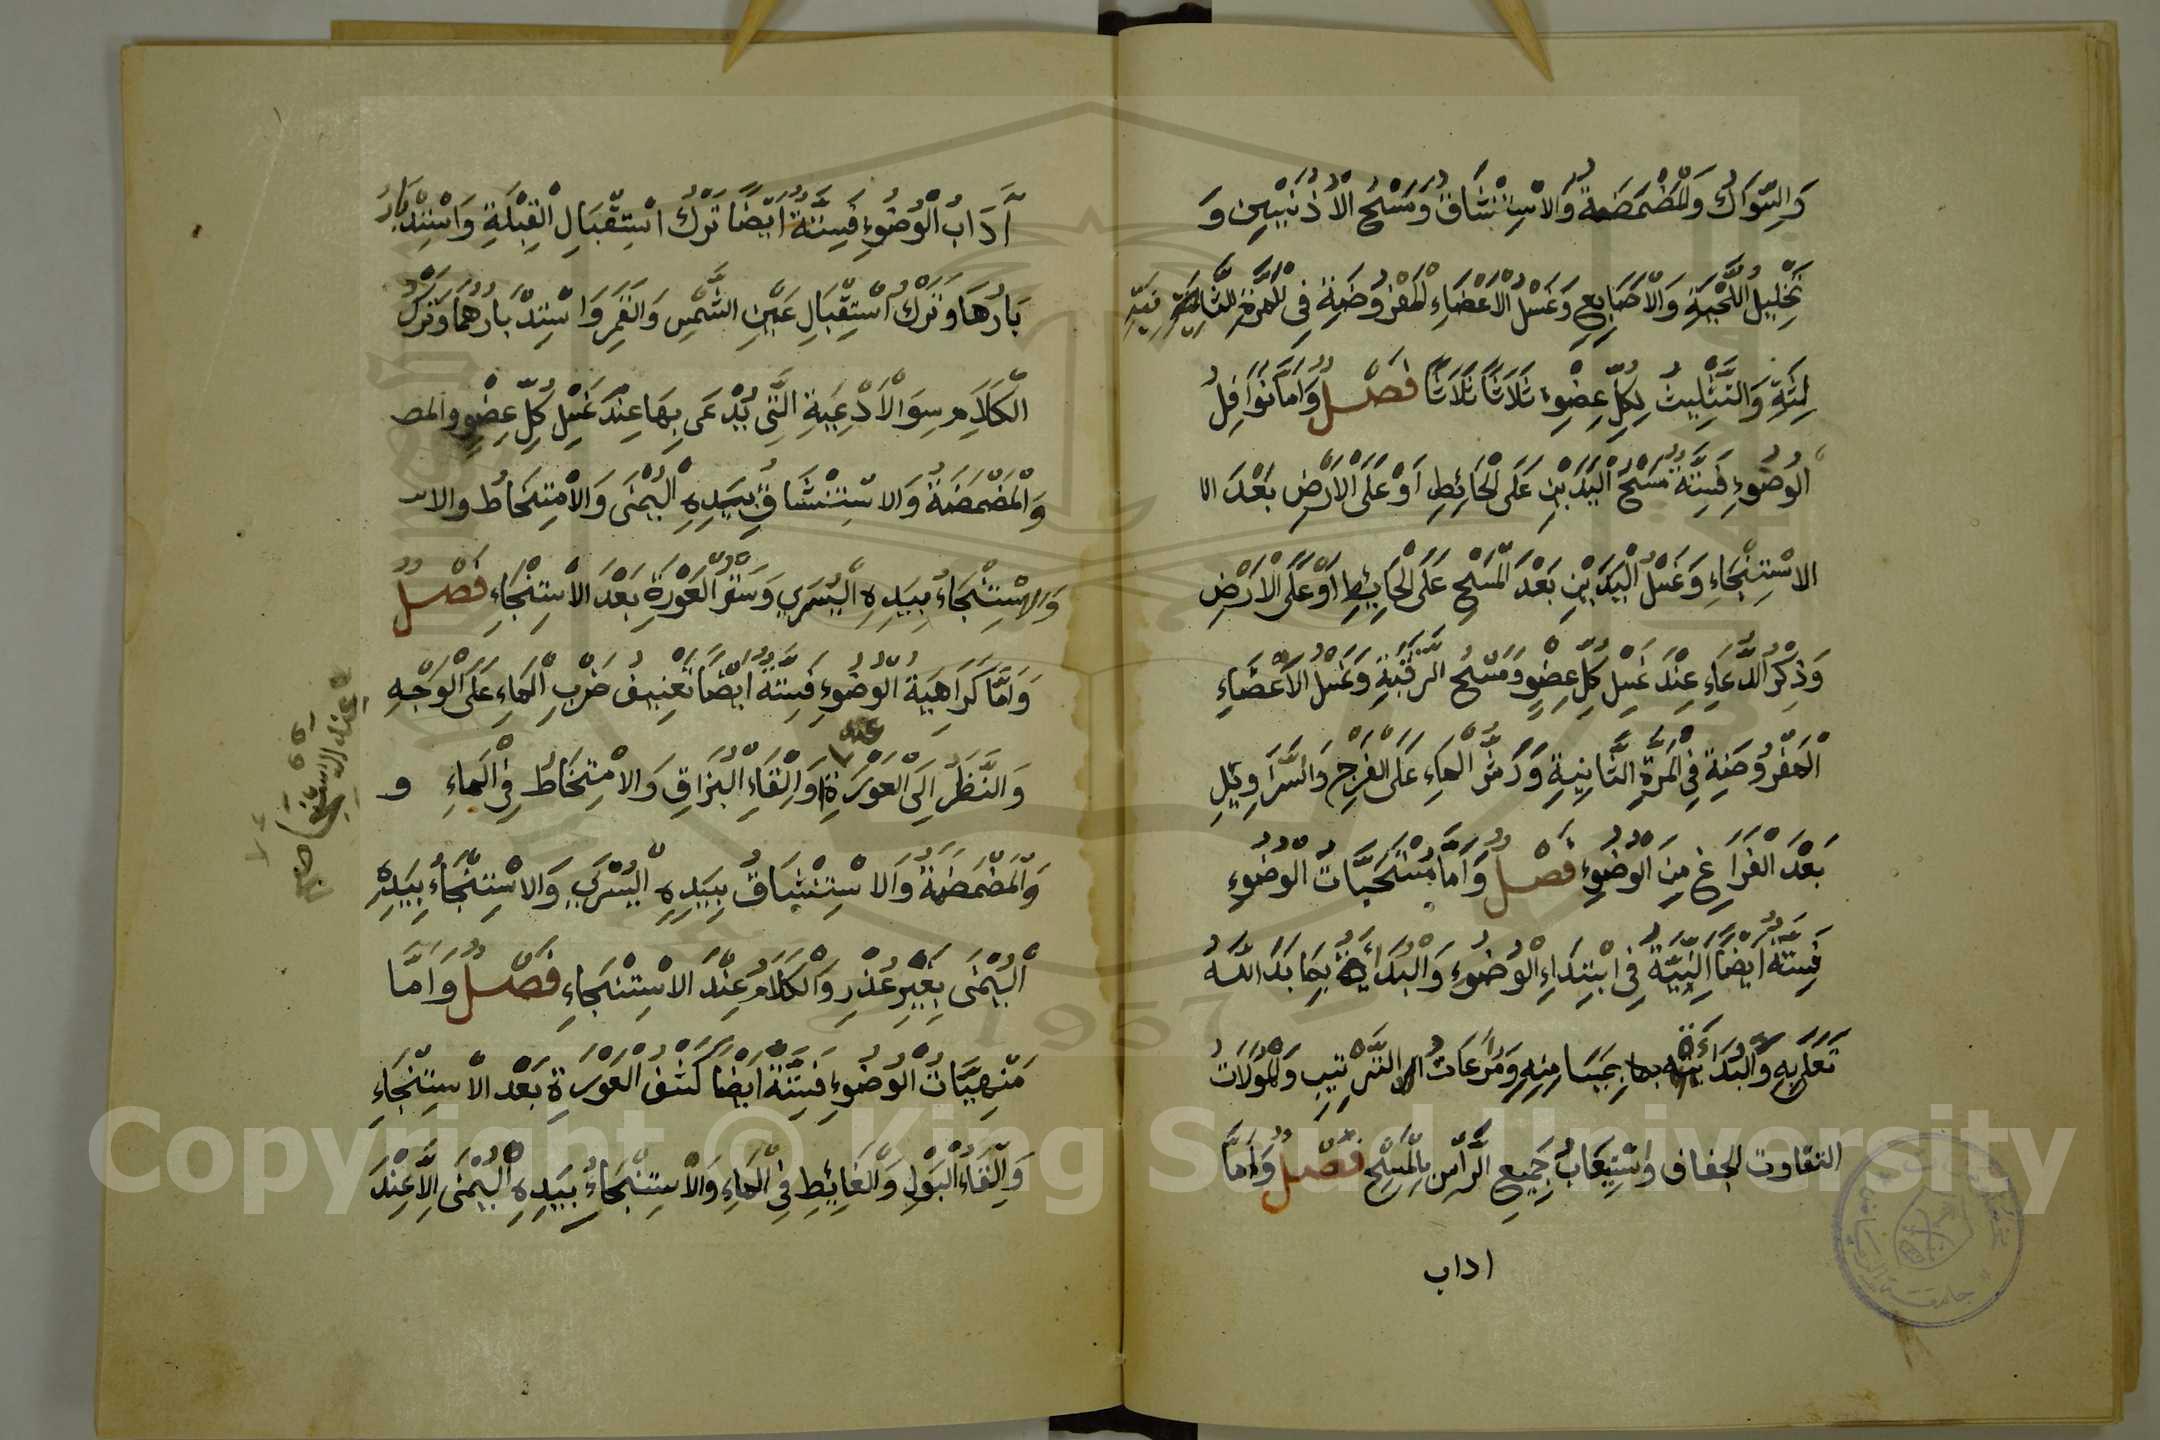 وَالسِّوَاكُ وَالْمَضْمَضَةُ وَالاسْتِنْشَاقُ وَمَسْحُ الْأُذُنَيْنِ وَ
تَخْلِيلُ اللِّحْيَةِ وَالْأَصَابِعِ وَغَسْلُ الْأَعْضَاءِ الْمَفْرُوضَةِ فِي الْمَرَّةِ الثَّانِيَةِ
لِثَةِ وَالتَّثْلِيثُ لِكُلِّ عِضْوٍ ثَلَاثًا ثَلَاثًا فَصْلٌ وَأَمَّا نَوَافِلُ
الْوُضُوءِ فَسِتَّةٌ مَسْحُ الْيَدَيْنِ عَلَى الْحَائِطِ أَوْ عَلَى الْأَرْضِ بَعْدَ الا
الاسْتِنْجَاءِ وَغَسْلُ الْيَدَيْنِ بَعْدَ الْمَسْحِ عَلَى الْحَائِطِ أَوْ عَلَى الْأَرْضِ
وَذِكْرُ الدُّعَاءِ عِنْدَ غَسْلِ كُلِّ عِضْوٍ وَمَسْحُ الرَّقَبَةِ وَغَسْلُ الْأَعْضَاءِ
الْمَفْرُوضَةِ فِي الْمَرَّةِ الثَّانِيَةِ وَرَشُّ الْمَاءِ عَلَى الْفَرْجِ وَالسَّرَاوِيلِ
بَعْدَ الْفَرَاغِ مِنَ الْوُضُوءِ فَصْلٌ وَأَمَّا مُسْتَحَبَّاتُ الْوُضُوءِ
فَسِتَّةٌ أَيْضًا النِّيَّةُ فِي ابْتِدَاءِ الْوُضُوءِ وَالْبَدَايَةُ بِمَا بَدَأَ اللهُ
تَعَالَى بِهِ وَالْبَدَاءَةُ بِمَيَامِنِهِ وَمُرَاعَاتُ التَّرْتِيبِ وَالْمُوَلَاتُ
التفاوت الجفاف وَاسْتِيعَابُ جَمِيعِ الرَّأْسِ بِالْمَسْحِ فَصْلٌ وَأَمَّا
اداب
آدَابُ الْوُضُوءِ فَسِتَّةٌ أَيْضًا تَرْكُ اسْتِقْبَالِ الْقِبْلَةِ وَاسْتِدْبَارُ
بَارُهَا وَتَرْكُ اسْتِقْبَالِ عَيْنِ الشَّمْسِ وَالْقَمَرِ وَاسْتِدْبَارُهُمَا وَتَرْكُ
الْكَلَامِ سِوَ الْأَدْعِيَةِ الَّتِي يُدْعَى بِهَا عِنْدَ غَسْلِ كُلِّ عِضْوٍ والمض
وَالْمَضْمَضَةُ وَالاسْتِنْشَاقُ بِيَدِهِ الْيُمْنَى وَالامْتِخَاطُ والاس
وَالاسْتِنْجَاءُ بِيَدِهِ الْيُسْرَي وَسَتْرُ الْعَوْرَةِ بَعْدَ الاسْتِنْجَاءِ فَصْلٌ
وَأَمَّا كَرَاهِيَةُ الْوُضُوءِ فَسِتَّةٌ أَيْضًا تَعْنِيفُ ضَرْبِ الْمَاءِ عَلَى الْوَجْهِ
وَالنَّظَرُ إِلَى الْعَوْرَةِ وَإِلْقَاءِ الْبُزَاقِ وَالامْتِخَاطُ فِي الْمَاءِ و
وَالْمَضْمَضَةُ وَالاسْتِنْشَاقُ بِيَدِهِ الْيُسْرَي وَالاسْتِنْجَاءُ بِيَدِهِ
الْيُمْنَى بِغَيْرِ عُذْرٍ وَالْكَلَامُ عِنْدَ الاسْتِنْجَاءِ فَصْلٌ وَأَمَّا
مَنْهِيَّاتُ الْوُضُوءِ فَسِتَّةٌ أَيْضًا كَشْفُ الْعَوْرَةِ بَعْدَ الاسْتِنْجَاءِ
وَإِلْقَاءُ الْبَوْلِ وَالْغَائِطِ فِي الْمَاءِ وَالاسْتِنْجَاءُ بِيَدِهِ الْيُمْنَى إِلَّا عِنْدَ
عند الاستنجا صح
Copyright © King Saud University
1957